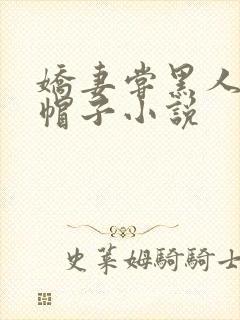 嬌妻嘗黑人
帽子小說
史萊姆騎騎士